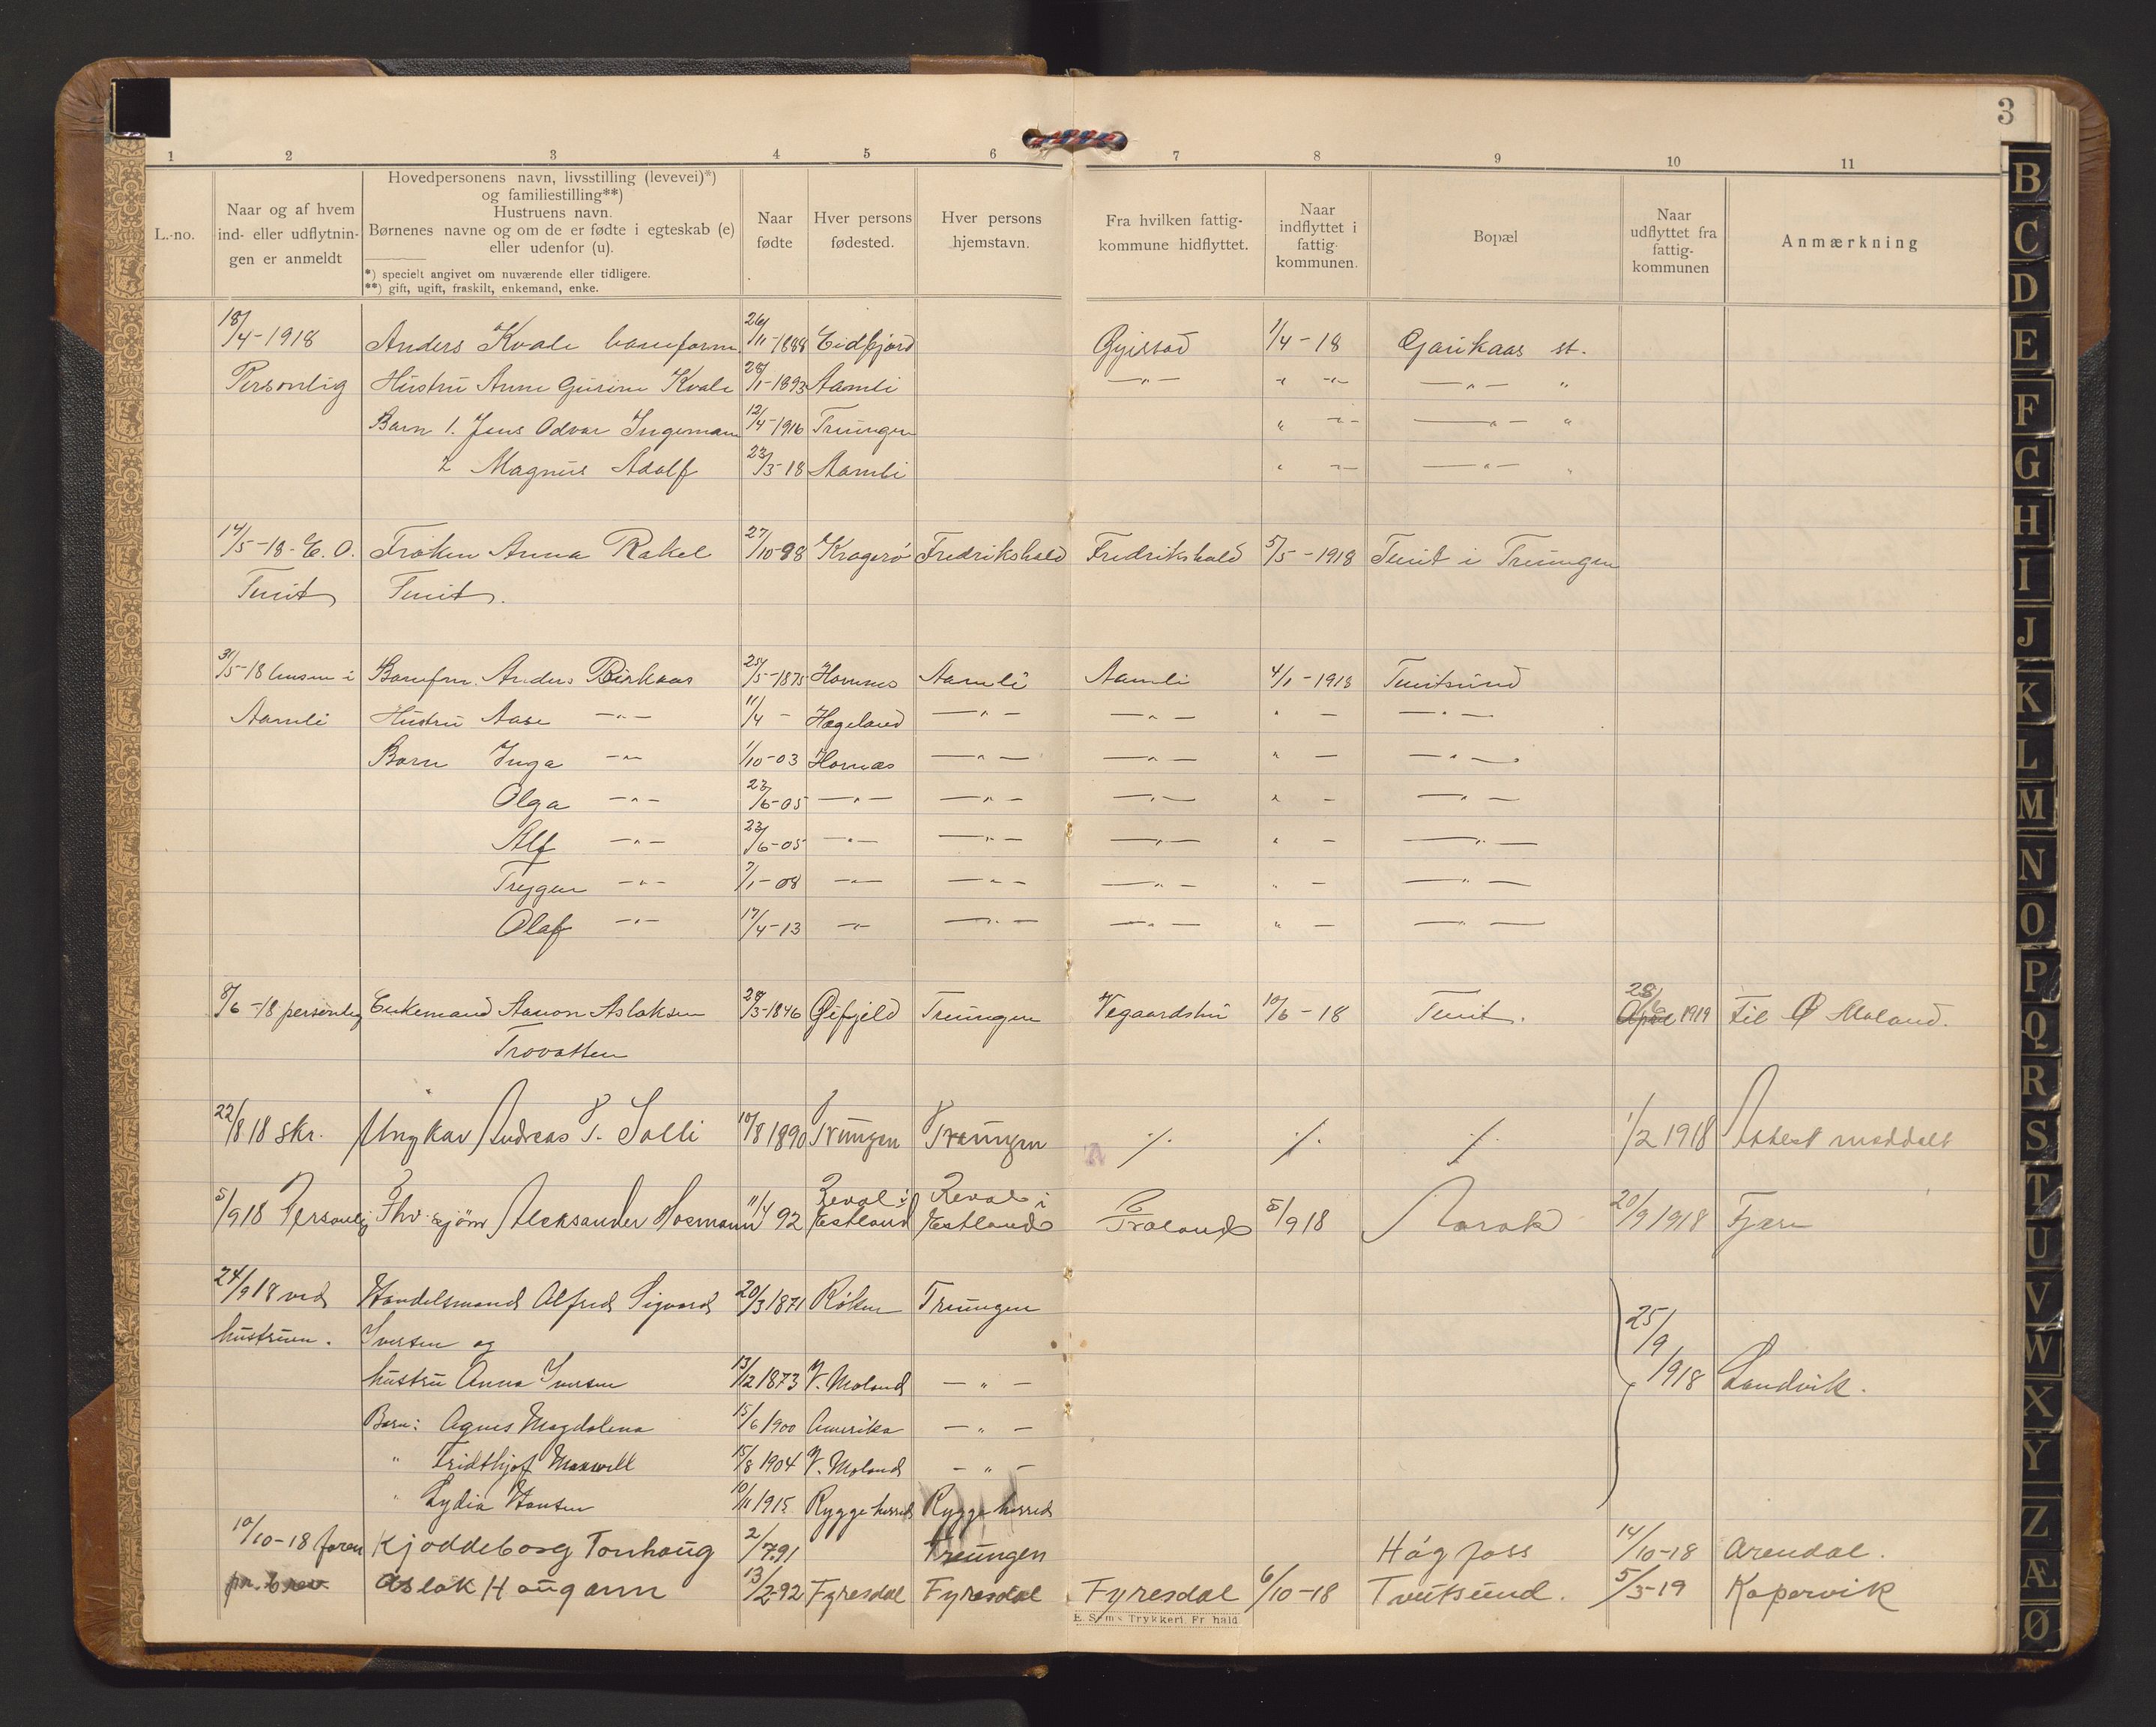 3
1 2 3 4 5 6 7 8 9 10 11
L.-no.
Naar og af hvem
ind- eller udflytnin-
gen er anmeldt
Hovedpersonens navn, livsstilling (levevei)*)
og familiestilling**)
Hustruens navn.
Børnenes navne og om de er fødte i egteskab (e)
eller udenfor (u).
*) specielt angivet om nuværende eller tidligere.
**) gift, ugift, fraskilt, enkemand, enke.
Naar
fødte
Hver persons
fødested.
Hver persons
hjemstavn.
Fra hvilken fattig-
kommune hidflyttet.
Naar
indflyttet i
fattig-
kommunen.
Bopæl
Naar
udflyttet fra
fattig-
kommunen
Anmærkning
18/4-1918 Anders Kvale baneform 26/11-1888 Eidfjord Gjerstad 1/4-18 st.
Personlig Hustru Anne Gurine Kvale 28/1-1893 Aamli -"- " -"- -"- "
Barn 1. Jens Odvar Ingemann 12/4-1916 Treungen " -"- -"- "
2 Magnus Adolf 23/3-18 Aamli " -"- -"- "
14/5-18- E. O. Frøken Anna Rakel 27/10-98 Kragerø Fredrikshald Fredrikshald 5/5-1918 Tveit i Treungen
Tveit Tveit.
31/5-18 i Banefm. Anders Birkaas 25/5-1875 Hornnes Aamli Aamli 4/1-1918 Tveitsund
Aamli Hustru Aase -"- 11/4 - Hægeland -"- -"- " - -"-
Barn Inga -"- 1/10-03 Hornæs -"- -"- " - -"-
Olga -"- 23/6-05 -"- -"- -"- " - -"-
Alf -"- 23/6-05 -"- -"- -"- " - -"-
Tryggve -"- 7/1-08 -"- -"- -"- " - -"-
Olaf -"- 17/4-13 -"- -"- -"- " - -"-
8/6-18 personlig Enkemand Aanon Aslaksen 28/3-1846 Gjfjeld Treungen Vegaardshei 10/6-18 Tveit. 28/6 1919 Til Ø Moland.
Trovatten
22/8 18 skr. Ungkar Andreas T. Solli 10/8 1890 Treungen Treungen ·/. ·/. ·/. 1/2 1918 Attest meddelt
5/9 18 Personlig Fhv. sjøm Aleksander Hosmann 11/4 92 Reval i Estland Reval i Estland Froland 5/9 18 20/9 1918 Fjære
24/9 18 ved Handelsmand Alfred Sigvard 20/3 1871 Røken Treungen
hustruen. Iversen og 25/9
hustru Anna Iversen 13/12 1873 V. Moland - " - 1918 Landvik.
Barn: Agnes Magdalena 15/6 1900 Amerika - " -
" Fridthjof Maxwell 15/8 1904 V. Moland - " -
" Lydia Hansen 10/11 1915 Rygge herred Rygge herred
10/10-18 faren Kjøddeborg Tonhaug 2/7 91 Treungen Høgfoss 14/10-18 Arendal.
pr. brev Aslak Haugann 13/2-92 Fyresdal Fyresdal Fyresdal 6/10-18 Tveitsund. 5/3-19 Kopervik
E. Sem's Trykkeri. Fr.hald
B
C
D
E
F
G
H
I
J
K
L
M
N
O
P
Q
R
S
T
U
V
W
X
Y
Z
Æ
Ø